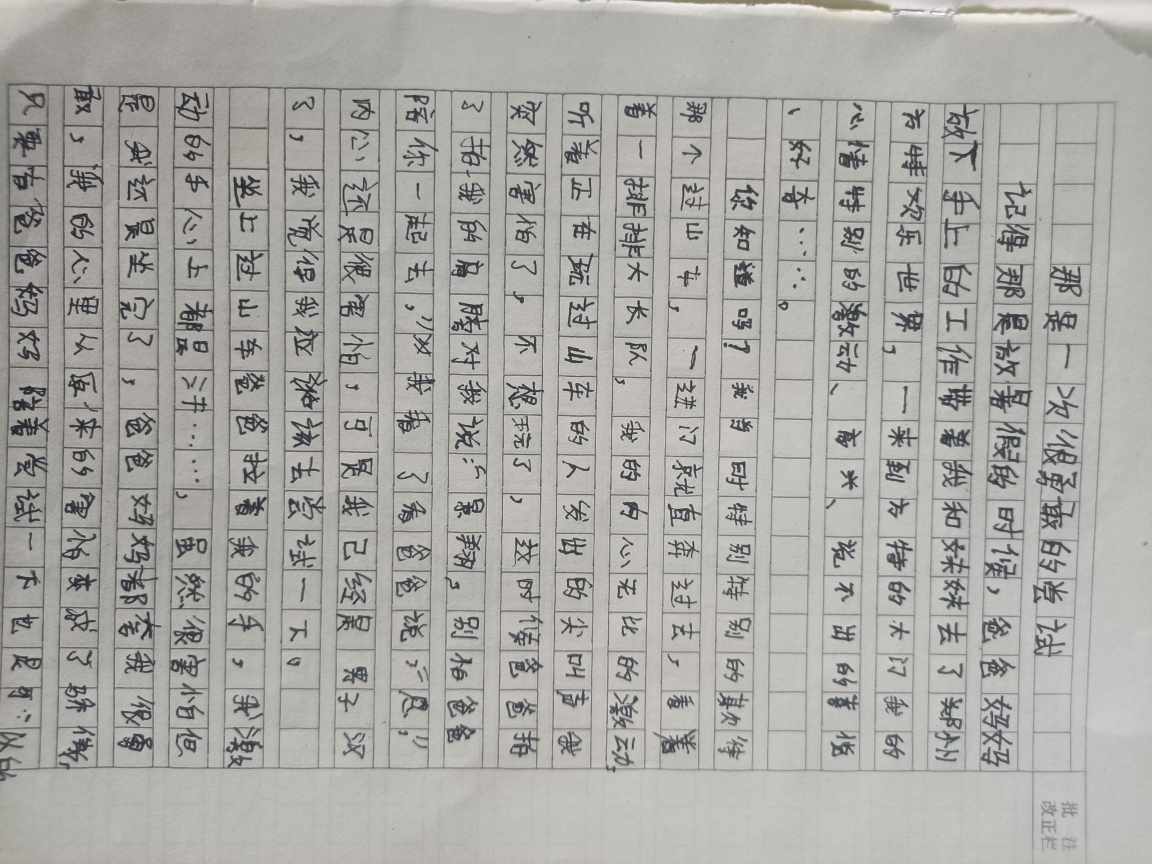 那是一次很勇敢的尝试
记得那是放暑假的时候，爸爸妈妈
放下手上的工作带着我和妹妹去了郑州
方特欢乐世界，一来到方特的大门我的
心情特别的激动、高兴、说不出的惊
、好奇……。
你知道吗？我当时特别特别的期待
那个过山车，一进门就直奔过去，看着
着一排排大长队，我的内心无比的激动，
听着正在玩过山车的人发出的尖叫声我
突然害怕了，不想玩了，这时候爸爸拍
了拍我的肩膀对我说：“景翔，别怕爸爸
陪你一起去，”汉我看了看爸爸说：“恩，”
内心还是很害怕，可是我已经是男子汉
了，我觉得我应该去尝试一下。
坐上过山车爸爸拉着我的手，我激
动的手心上都是汗……，虽然很害怕但
是我还是坐完了，爸爸妈妈都夸我很勇
敢，我的心里从原来的害怕变成了骄傲，
只要有爸爸妈妈陪着尝试一下也是可以的
批注
改正栏